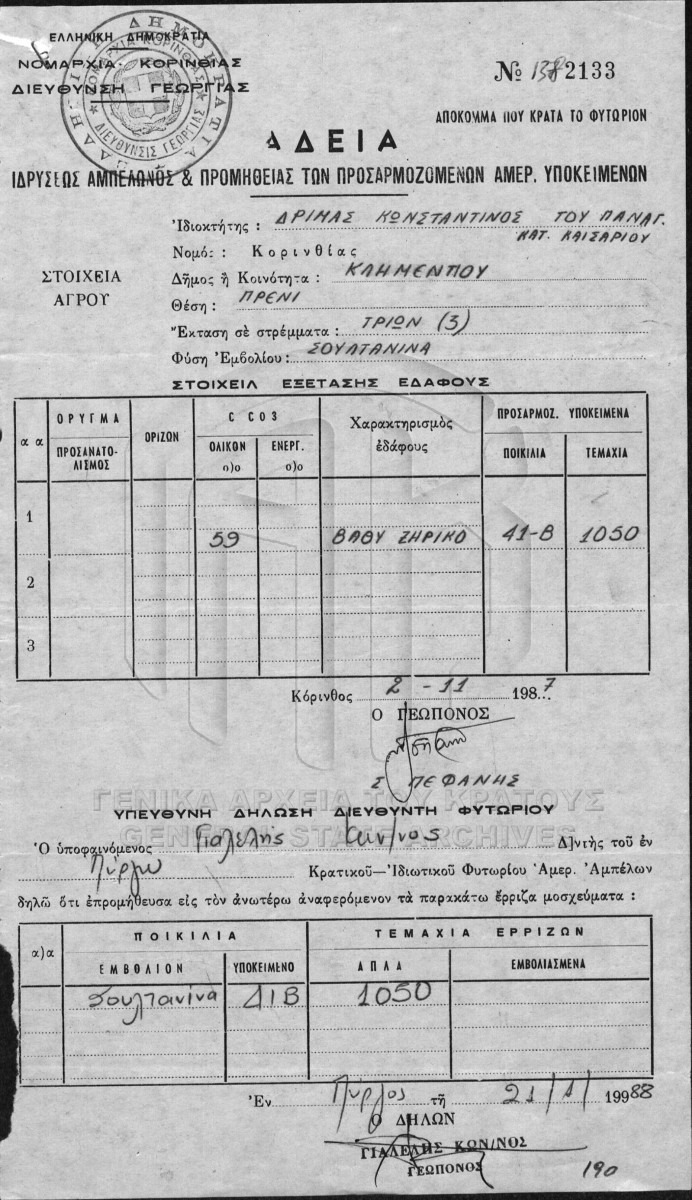 ΕΛΛΗΝΙΚΗ ΔΗΜΟΚΡΑΤΙΑ
ΝΟΜΑΡΧΙΑ ΚΟΡΙΝΘΙΑΣ
ΔΙΕΥΘΥΝΣΗ ΓΕΩΡΓΙΑΣ
№ 2133
ΑΠΟΚΟΜΜΑ ΠΟΥ ΚΡΑΤΑ ΤΟ ΦΥΤΩΡΙΟΝ
ΑΔΕΙΑ
ΙΔΡΥΣΕΩΣ ΑΜΠΕΛΩΝΟΣ & ΠΡΟΜΗΘΕΙΑΣ ΤΩΝ ΠΡΟΣΑΡΜΟΖΟΜΕΝΩΝ ΑΜΕΡ. ΥΠΟΚΕΙΜΕΝΩΝ
ΣΤΟΙΧΕΙΑ ΑΓΡΟΥ
Ἰδιοκτήτης : ΔΡΙΜΑΣ ΚΩΝΣΤΑΝΤΙΝΟΣ ΤΟΥ ΠΑΝΑΓ.
ΚΑΤ. ΚΑΙΣΑΡΙΟΥ
Νομός : Κορινθίας
Δῆμος ἢ Κοινότητα : ΚΛΗΜΕΝΤΙΟΥ
Θέση : ΠΡΕΝΙ
Ἔκταση σὲ στρέμματα : ΤΡΙΩΝ (3)
Φύση Ἐμβολίου : ΣΟΥΛΤΑΝΙΝΑ
ΣΤΟΙΧΕΙΑ ΕΞΕΤΑΣΗΣ ΕΔΑΦΟΥΣ
α α ΟΡΥΓΜΑ ΠΡΟΣΑΝΑΤΟ-ΛΙΣΜΟΣ ΟΡΙΖΩΝ C CO3 ΟΛΙΚΟΝ ο)ο ΕΝΕΡΓ. ο)ο Χαρακτηρισμὸς ἐδάφους ΠΡΟΣΑΡΜΟΖ. ΥΠΟΚΕΙΜΕΝΑ ΠΟΙΚΙΛΙΑ ΤΕΜΑΧΙΑ
1 59 ΒΑΘΥ ΖΗΡΙΚΟ 41-Β 1050
2
3
Κόρινθος 2 - 11 1987
Ο ΓΕΩΠΟΝΟΣ
Σ ΠΕΦΑΝΗΣ
ΓΕΝΙΚΑ ΑΡΧΕΙΑ ΤΟΥ ΚΡΑΤΟΥΣ
GENERAL STATE ARCHIVES
ΥΠΕΥΘΥΝΗ ΔΗΛΩΣΗ ΔΙΕΥΘΥΝΤΗ ΦΥΤΩΡΙΟΥ
Ὁ ὑποφαινόμενος Γιαλελής Κων/νος Δ]ντὴς τοῦ ἐν
Πύργω Κρατικοῦ—Ἰδιωτικοῦ Φυτωρίου Ἀμερ. Ἀμπέλων
δηλῶ ὅτι ἐπρομήθευσα εἰς τὸν ἀνωτέρω ἀναφερόμενον τὰ παρακάτω ἔρριζα μοσχεύματα :
α)α ΠΟΙΚΙΛΙΑ ΤΕΜΑΧΙΑ ΕΡΡΙΖΩΝ
ΕΜΒΟΛΙΟΝ ΥΠΟΚΕΙΜΕΝΟ ΑΠΛΑ ΕΜΒΟΛΙΑΣΜΕΝΑ
Σουλτανίνα 41Β 1050
Ἐν Πύργος τῇ 21/1/ 19988
Ο ΔΗΛΩΝ
ΓΙΑΛΕΛΗΣ ΚΩΝ/ΝΟΣ
ΓΕΩΠΟΝΟΣ
190